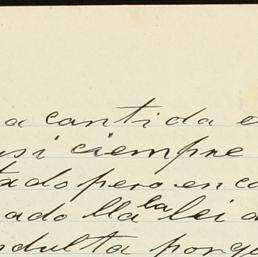 a cantida e
usi ciempre
tado pero en ca
ado lla la lei a
ndulta porqu